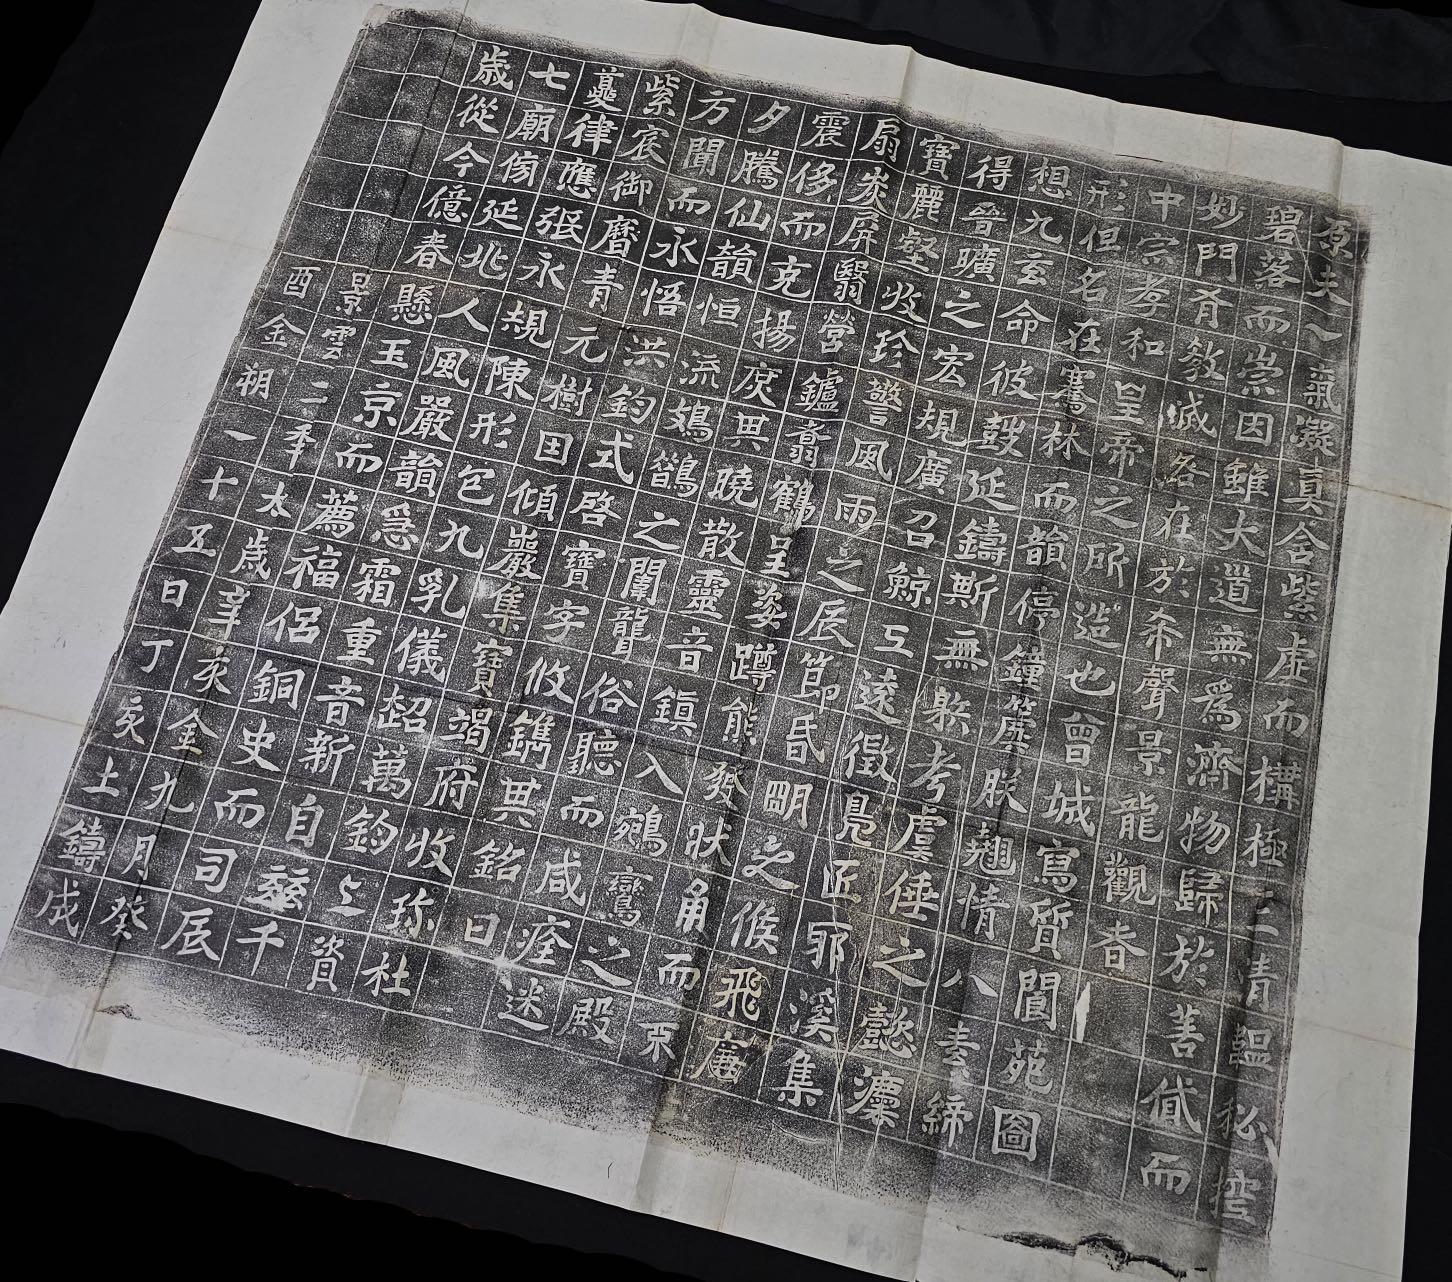 原夫一氣凝真含紫虛而構極三清韞秘控
碧落而崇因雖大道無爲濟物歸於善貸而
妙門有教誡咎在於希聲景龍觀者
中宗孝和皇帝之所造也曾城寫質閬苑圖
形但名在騫林而韻停鐘簴朕翹情八素締
想九玄命彼鼓延鑄斯無射考虞倕之懿灋
得晉曠之宏規廣召鯨工遠徵鳧匠耶溪集
寶麗壑收珍警風雨之辰節昏明之候飛廉
扇炭屏翳營鑪翥鶴呈姿蹲熊發狀角而不
震侈而克揚庶其曉散靈音鎮入鵷鸞之殿
夕騰仙韻恒流鳷鵲之闈聾俗聽而咸痊迷
方聞而永悟洪鈞式啓寶字攸鐫其銘曰
紫宸御曆青元樹因傾巖集寶竭府收珎杜
夔律應張永規陳形包九乳儀超萬鈞上資
七廟傍延兆人風嚴韻急霜重音新自茲千
歲從今億春懸玉京而薦福侶銅史而司辰
景雲二年太歲辛亥金九月癸
酉金朔一十五日丁亥土鑄成